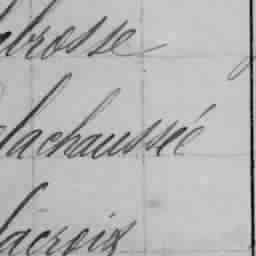 abrosse
lachaussée
lacroix